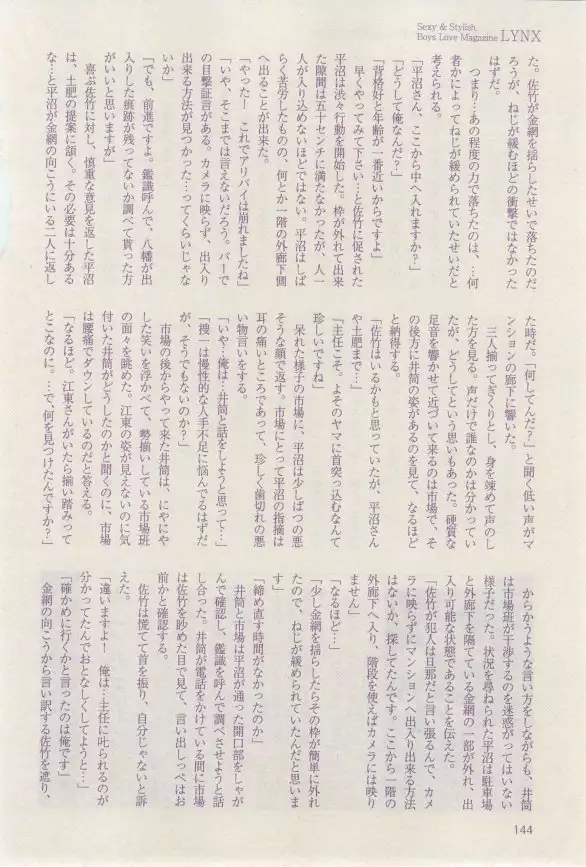 Sexy & Stylish,
Boys Love Magazine LYNX
た。佐竹が金網を揺らしたせいで落ちたのだ
ろうが、ねじが緩むほどの衝撃ではなかった
はずだ。
つまり…あの程度の力で落ちたのは、…何
者かによってねじが緩められていたせいだと
考えられる。
「平沼さん、ここから中へ入れますか?」
「どうして俺なんだ?」
「背格好と年齢が一番近いからですよ」
早くやってみて下さい…と佐竹に促された
平沼は渋々行動を開始した。枠が外れて出来
た隙間は五十センチに満たなかったが、人一
人が入り込めないほどではない。平沼はしば
らく苦労したものの、何とか一階の外廊下側
へ出ることが出来た。
「やったー これでアリバイは崩れましたね」
「いや、そこまでは言えないだろう。バーで
の目撃証言がある。カメラに映らず、出入り
出来る方法が見つかった…ってくらいじゃな
いか」
「でも、前進ですよ。鑑識呼んで、八幡が出
入りした痕跡が残ってないか調べて貰った方
がいいと思いますが」
喜ぶ佐竹に対し、慎重な意見を返した平沼
は、土肥の提案に頷く。その必要は十分ある
な…と平沼が金網の向こうにいる二人に返し
た時だ。「何してんだ?」と聞く低い声がマ
ンションの廊下に響いた。
三人揃ってぎくりとし、身を竦めて声のし
た方を見る。声だけで誰なのかは分かってい
たが、どうしてという思いもあった。硬質な
足音を響かせて近づいて来るのは市場で、そ
の後方に井筒の姿があるのを見て、なるほど
と納得する。
「佐竹はいるかもと思っていたが、平沼さん
や土肥まで…」
「主任こそ。よそのヤマに首突っ込むなんて
珍しいですね」
呆れた様子の市場に、平沼は少しばつの悪
そうな顔で返す。市場にとって平沼の指摘は
耳の痛いところであって、珍しく歯切れの悪
い物言いをする。
「いや…俺は…井筒と話をしようと思って…」
「捜一は慢性的な人手不足に悩んでるはずだ
が、そうでもないのか?」
市場の後からやって来た井筒は、にやにや
した笑いを浮かべて、勢揃いしている市場班
の面々を眺めた。江東の姿が見えないのに気
付いた井筒がどうしたのかと聞くのに、市場
は腰痛でダウンしているのだと答える。
「なるほど。江東さんがいたら揃い踏みって
とこなのに。…で、何を見つけたんですか?」
からかうような言い方をしながらも、井筒
は市場班が干渉するのを迷惑がってはいない
様子だった。状況を尋ねられた平沼は駐車場
と外廊下を隔てている金網の一部が外れ、出
入り可能な状態であることを伝えた。
「佐竹が犯人は旦那だと言い張るんで、カメ
ラに映らずにマンションへ出入り出来る方法
はないか、探してたんです。ここから一階の
外廊下へ入り、階段を使えばカメラには映り
ません」
「なるほど…」
「少し金網を揺らしたらその枠が簡単に外れ
たので、ねじが緩められていたんだと思いま
す」
「締め直す時間がなかったのか」
井筒と市場は平沼が通った開口部をしゃが
んで確認し、鑑識を呼んで調べさせようと話
し合った。井筒が電話をかけている間に市場
は佐竹を眇めた目で見て、言い出しっぺはお
前かと確認する。
佐竹は慌てて首を振り、自分じゃないと訴
えた。
「違いますよ! 俺は…主任に叱られるのが
分かってたんでおとなしくしてようと…」
「確かめに行くかと言ったのは俺です」
金網の向こうから言い訳する佐竹を遮り、
144